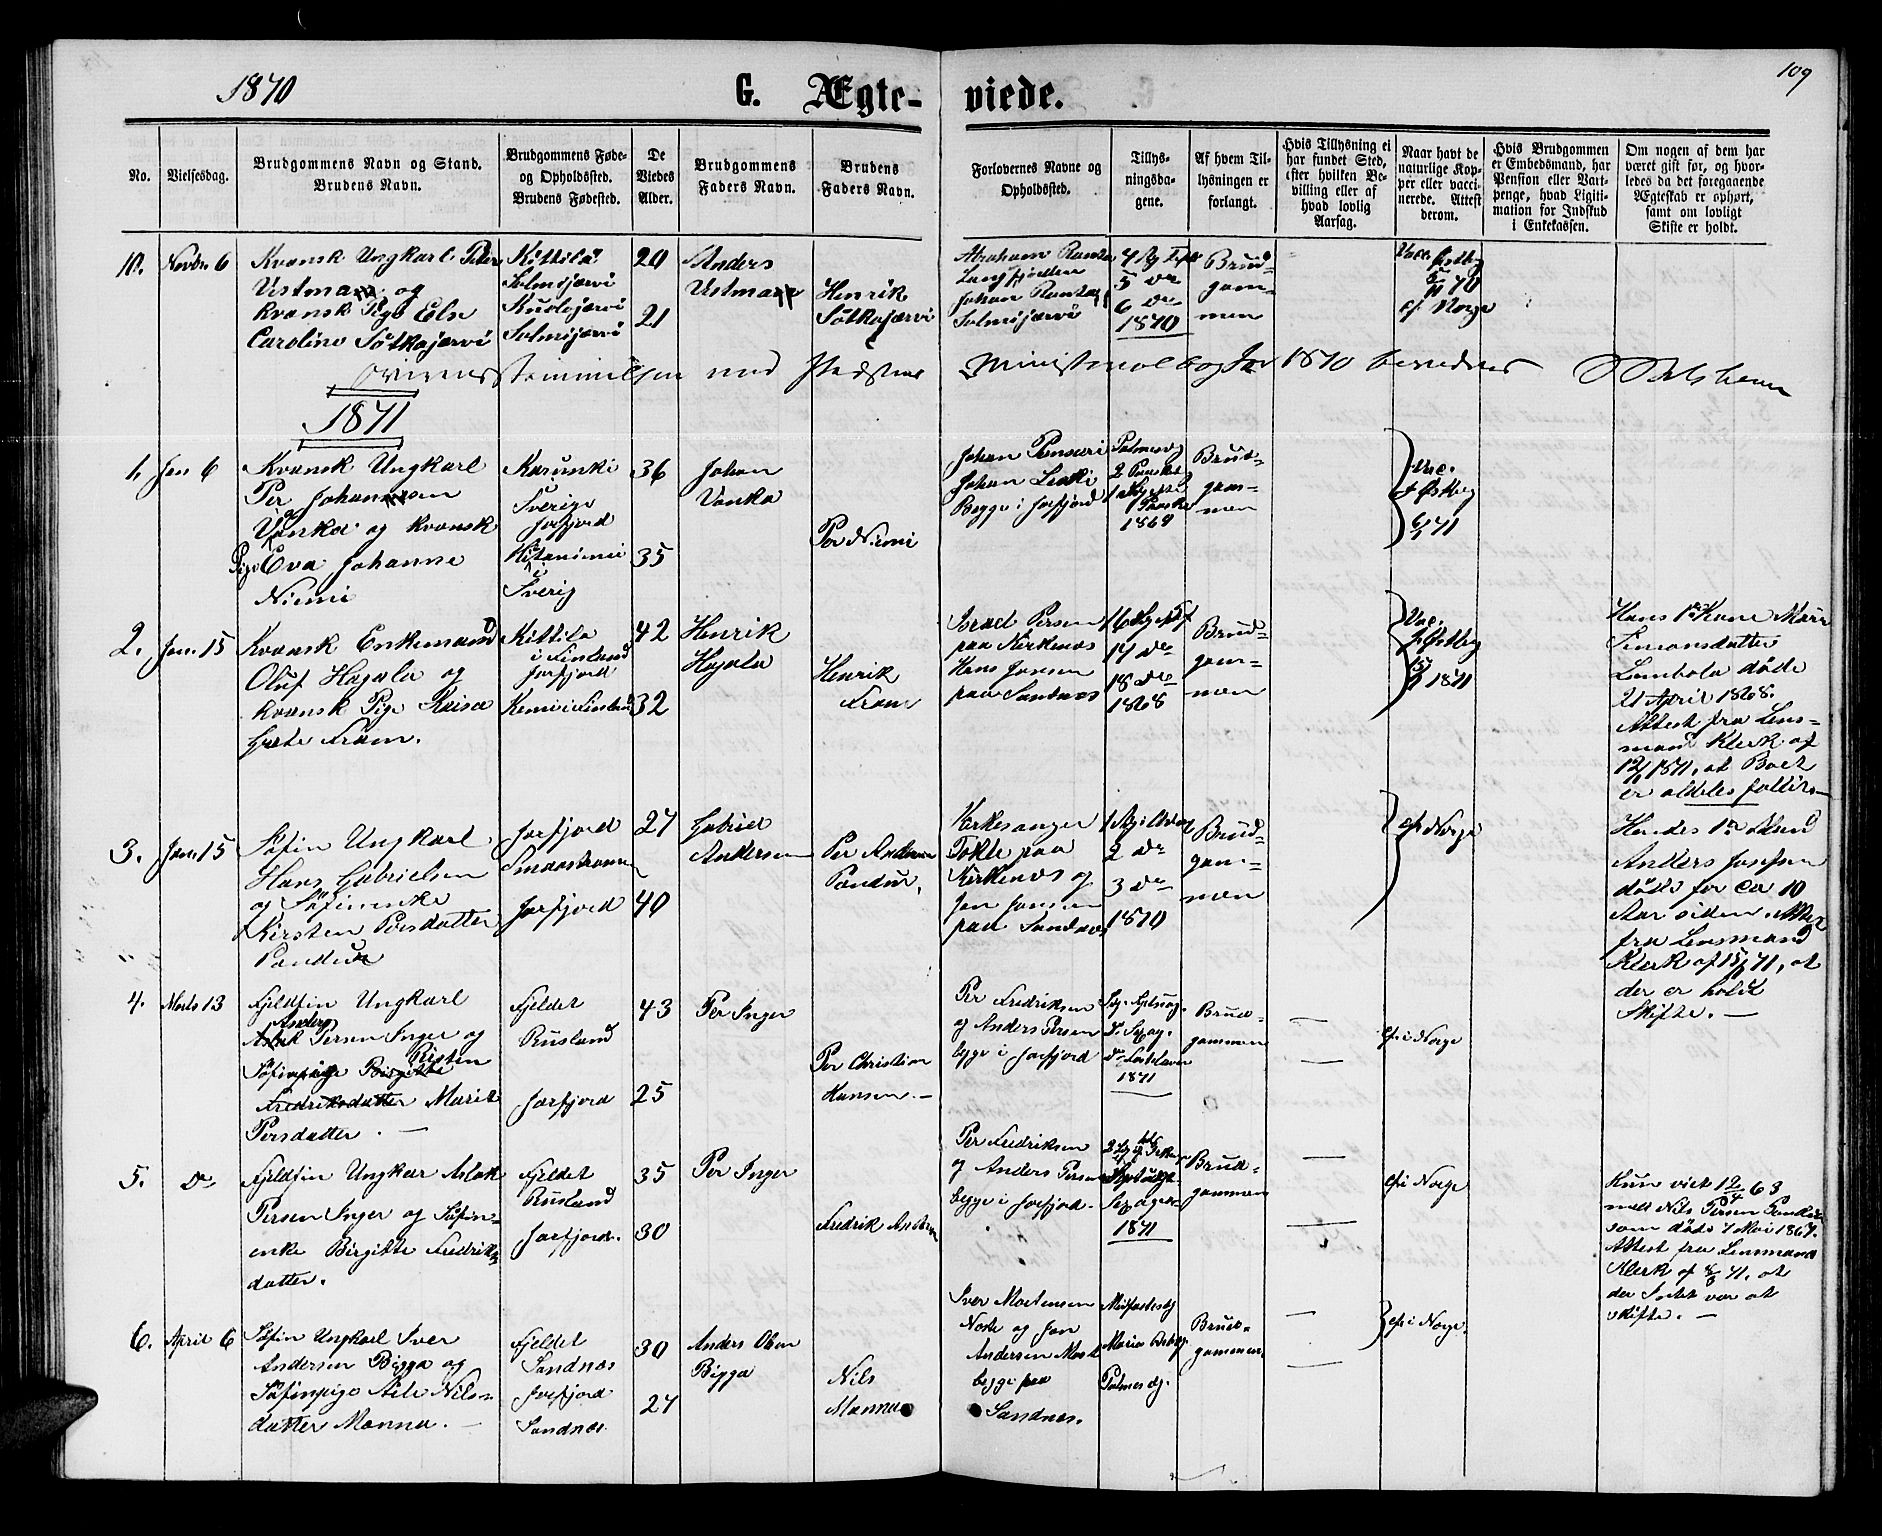 1870
G. Ægte-
viede.
109
No.
Vielsesdag.
Brudgommens Navn og Stand.
Brudens Navn.
Brudgommens Føde-
og Opholdssted.
Brudens Fødested.
De
Viedes
Alder.
Brudgommens
Faders Navn.
Brudens
Faders Navn.
Forlovernes Navne og
Opholdssted.
Tillys-
ningsda-
gene.
Af hvem Til-
lysningen er
forlangt.
Hvis Tillysning ei
har fundet Sted,
efter hvilken Be-
villing eller af
hvad lovlig
Aarsag.
Naar havt de
naturlige Kop-
per eller vacci-
nerede. Attest
derom.
Hvis Brudgommen
er Embedsmand, har
Pension eller Vart-
penge, hvad Ligiti-
mation for Indskud
i Enkekassen.
Om nogen af dem har
været gift før, og hvor-
ledes da det foregaaende
Ægteskab er ophørt,
samt om lovligt
Skifte er holdt.
10.
Novbr 6
Kvænsk Ungkarl Peter
Vestmann og
Kvænsk Pige Else
Caroline Sotkajærvi
Kittila
Solmijærvi
Kuolajærvi
Solmijærvi
20
21
Anders
Vestmann
Henrik
Sotkajærvi
Abraham Ranta
Langfjorden
Johan Ranta
Solmijærvi
5 do
6 do
1870
Brud-
gom-
men
Vacc. Østby
70
ef. Norge
Overensstemmelsen med Præstens Ministerialbog for 1870 bevidnes
1871
1.
Jan 6
Kvænsk Ungkarl
Per Johannesen
Vanka og Kvænsk
Pige Eva Johanne
Niemi
Karunki
i
Sverige
Jarfjord
Hitaniemi
i
Sverig
36
35
Johan
Vanka
Per Niemi
Johan Pensuri
Johan Leski
Begge i Jarfjord
Palmesdg
2 Paaskd
1869
Brud-
gom-
men
Vac.
Østby
6/1 71
2.
Jan. 15
Kvænsk Enkemand
Oluf Hagala og
kvænsk Pige Kaisa
Grete Fram.
Kittila
i Finland
Jarfjord
Kemi i Finland
42
32
Henrik
Hagala
Henrik
Fram
Israel Persen
paa Kirkenes
Hans Jansen
paa Sandnes
17 do
18 do
1868
Brud-
gom-
men
Vac.
Østby
15/1 1871
Hans 1ste Kone Mari
Simonsdatter
Lambola døde
21 April 1868.
Attest fra Lens-
mand Klerk af
12/1 1871, at Boet
er aldeles fallit.
3.
Jan. 15
Søfin Ungkarl
Hans Gabrielsen
og Søfinenke
Kirsten Persdatter
Pandur
Jarfjord
Smaastrømmen
Jarfjord
27
40
Gabriel
Andersen
Per Andersen
Pandur,
Kirkesanger
Tokle paa
Kirkenes og
Jon Jonsen
paa Sandnes
2 do
3 do
1870
Brud-
gom-
men
ef i Norge
Hendes 1ste Mand
Anders Josefsen
døde for ca 10
Aar siden. Attest
fra Lensmand
Klerk af 15/1 71, at
der er holdt
Skifte. —
4.
Marts 13
Fjeldfin Ungkarl
Anders
Aslak Persen Inger og
Kristen
Søfinpige Birgitte
Fredriksdatter Marit
Persdatter. —
Fjeldet
Rusland
Jarfjord
43
25
Per Inger
Per Christian
Hansen. —
Per Fredriksen
og Anders Persen
begge i Jarfjord
1871
Brud-
gommen
ef i Norge
5.
Do
Fjeldfin Ungkar Aslak
Persen Inger og Søfin-
enke Birgitte Fredriks-
datter.
Fjeldet
Rusland
Jarfjord.
35
30
Per Inger
Fredrik Andersen
Per Fredriksen
og Anders Persen
begge i Jarfjord.
1871
Brud-
gommen
ef i Norge
Hun viet 12/4 63
med Nils Persen Pandur
som døde 7 Mai 1867.
Attest fra Lensmand
Klerk af 8/3 71, at
der Intet var at
skifte. —
6.
April 6
Søfin Ungkarl Iver
Andersen Bigga og
Søfinpige Nils-
datter Manna. —
Fjeldet
Sandnæs
Jarfjord
Sandnæs
30
27
Anders Olsen
Bigga
Nils
Manna
Iver Mortensen
Noste og Jon
Andersen
begge paa
Sandnæs.
Midfastesdg
Maria
Palmesdg.
Brud-
gommen.
ef i Norge.